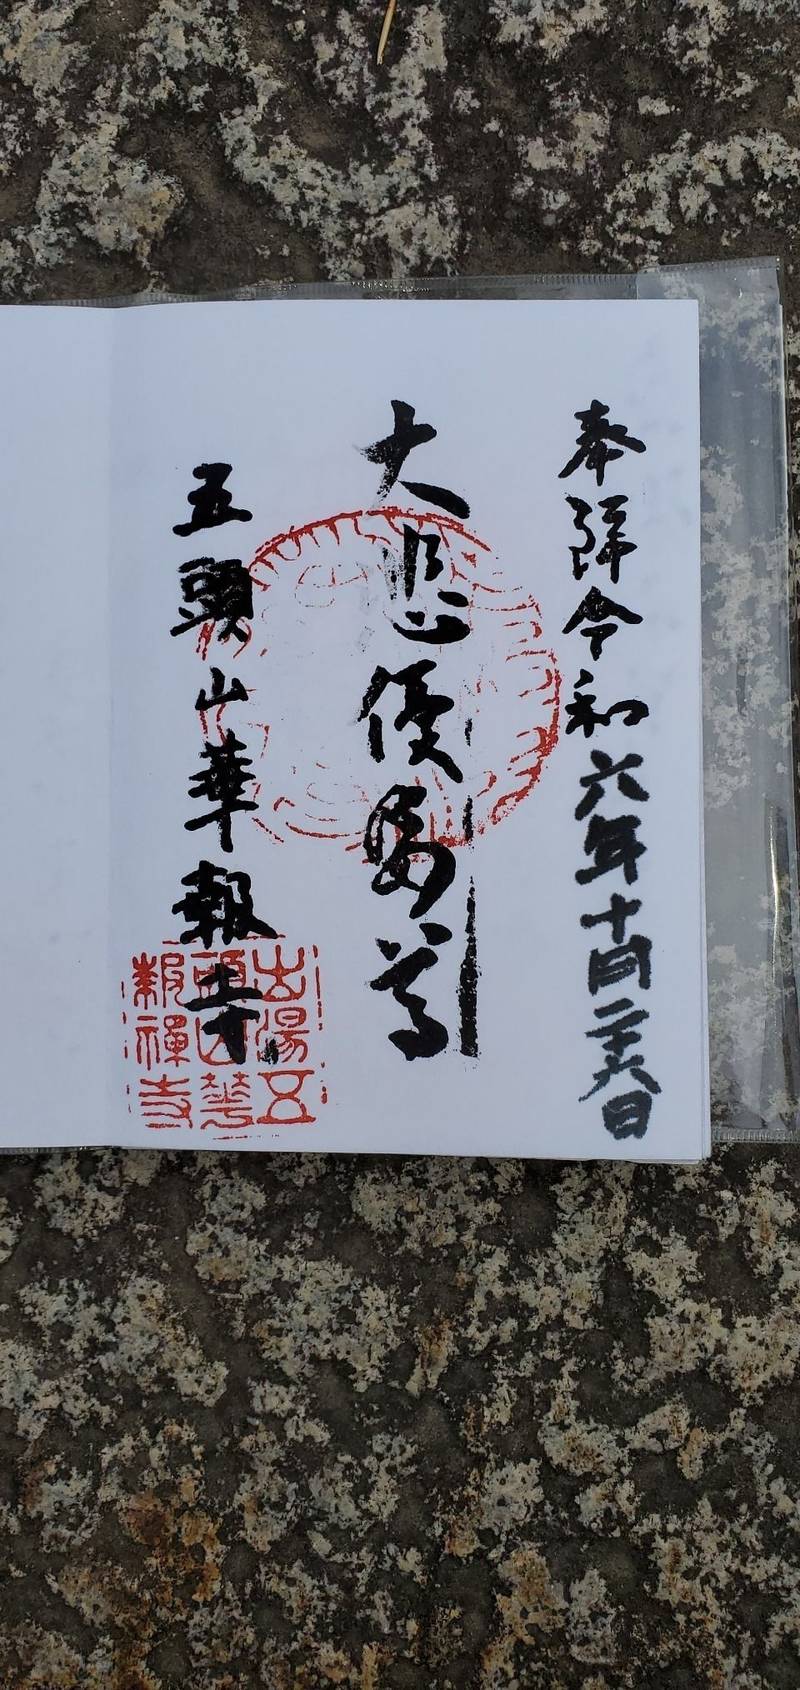 奉拝令和六年十月二十六日
大悲優婆尊
五頭山華報寺
出湯五
頭山華
報禅寺